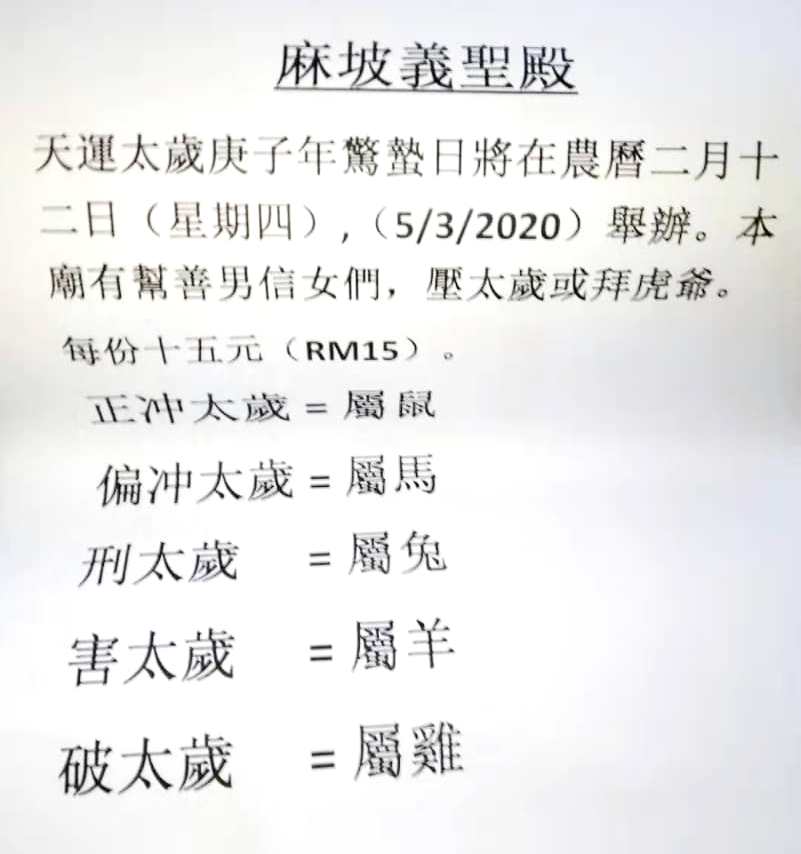 麻坡義聖殿
天運太歲庚子年驚蟄日將在農曆二月十
二日（星期四）,（5/3/2020）舉辦。本
廟有幫善男信女們，壓太歲或拜虎爺。
每份十五元（RM15）。
正冲太歲 = 屬鼠
偏冲太歲 = 屬馬
刑太歲 = 屬兔
害太歲 = 屬羊
破太歲 = 屬雞